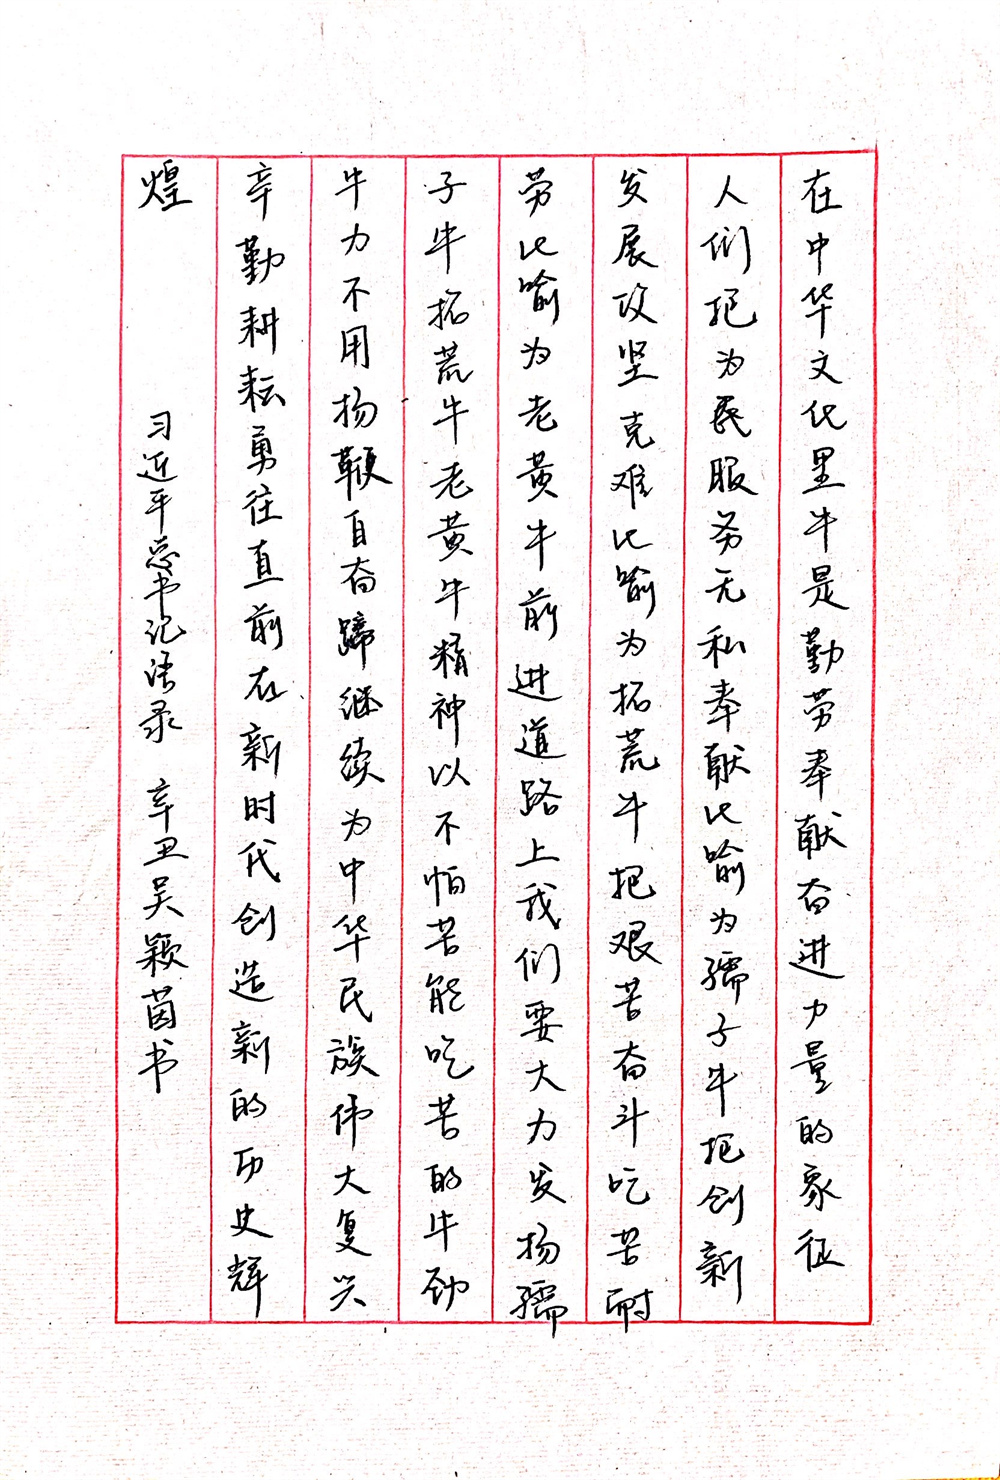 在中华文化里牛是勤劳奉献奋进力量的象征
人们把为民服务无私奉献比喻为孺子牛把创新
发展攻坚克难比喻为拓荒牛把艰苦奋斗吃苦耐
劳比喻为老黄牛前进道路上我们要大力发扬孺
子牛拓荒牛老黄牛精神以不怕苦能吃苦的牛劲
牛力不用扬鞭自奋蹄继续为中华民族伟大复兴
辛勤耕耘勇往直前在新时代创造新的历史辉
煌
习近平总书记语录 辛丑吴颖茵书